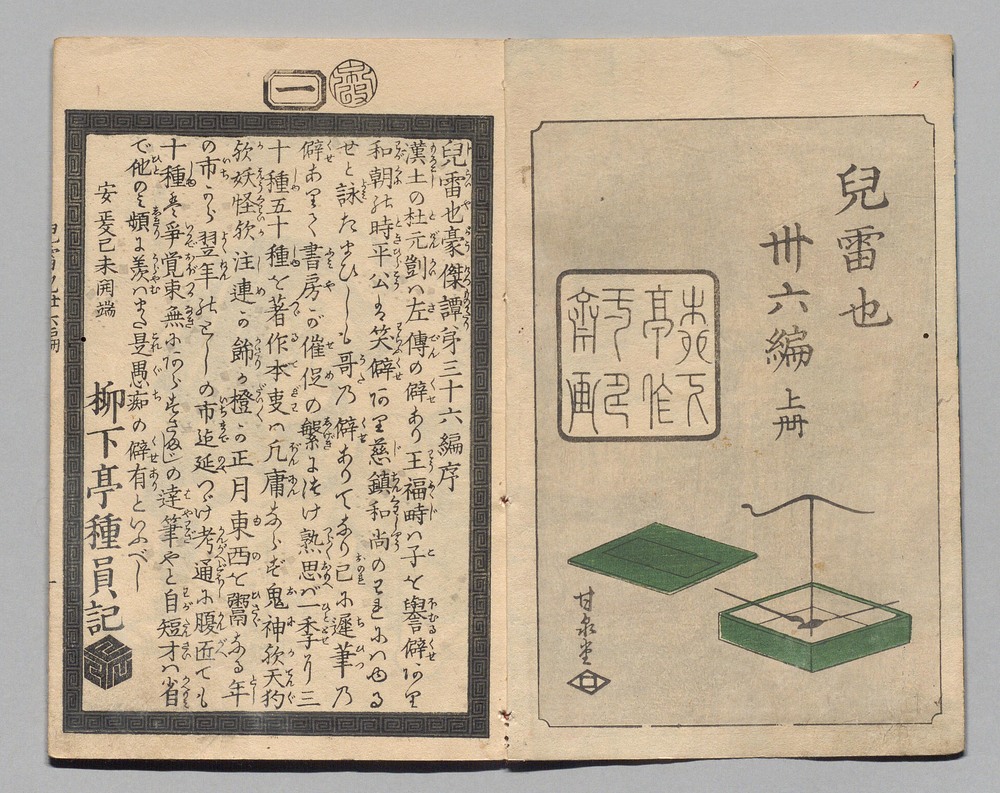 兒雷也
卅六編
上冊
甘泉堂
一
兒雷也豪傑譚第三十六編序
漢土の杜元凱ハ左傳の癖あり王福畤ハ子を譽癖あり
和朝の時平公ハ笑癖あり慈鎮和尚の
せと詠たまひしも哥乃癖ありてなり已に遲筆乃
癖ありて書房が催促の繁にほけ熟思バ一季より三
十種五十種を著作本叓ハ凡庸ならず鬼神欤天狗
欤妖怪欤注連の飾り橙の正月東西を鬻ある年
の市から翌年のとしの市迄延つけ考通に腹匝ても
十種ハ爭覚東無にあらずさぬじの達筆やと自短才ハ省
で他のミ頻に羨ハまた是愚痴の癖有といふべし
安政己未開端
柳下亭種員記